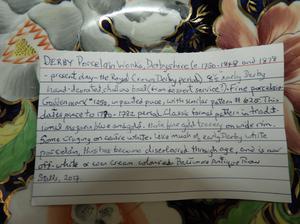 DERBY Porcelain Works, Derbyshire (c. 1750-1848 and 1878
- present day - the Royal Crown Derby period) 8½" early Derby
hand-decorated bowl (from dessert service). Fine porcelain.
Golden mark #1250, in painted puce, with similar pattern # 625. This
dates piece to 1770-1782 period. Classic formal pattern in
blue and gold. on underrim.
Some crazing on centre white. Like much of early Derby white
porcelain, this has become discoloured through age, and is now
off-white or even cream coloured. Baltimore Antique Row
Stalls, 2017.